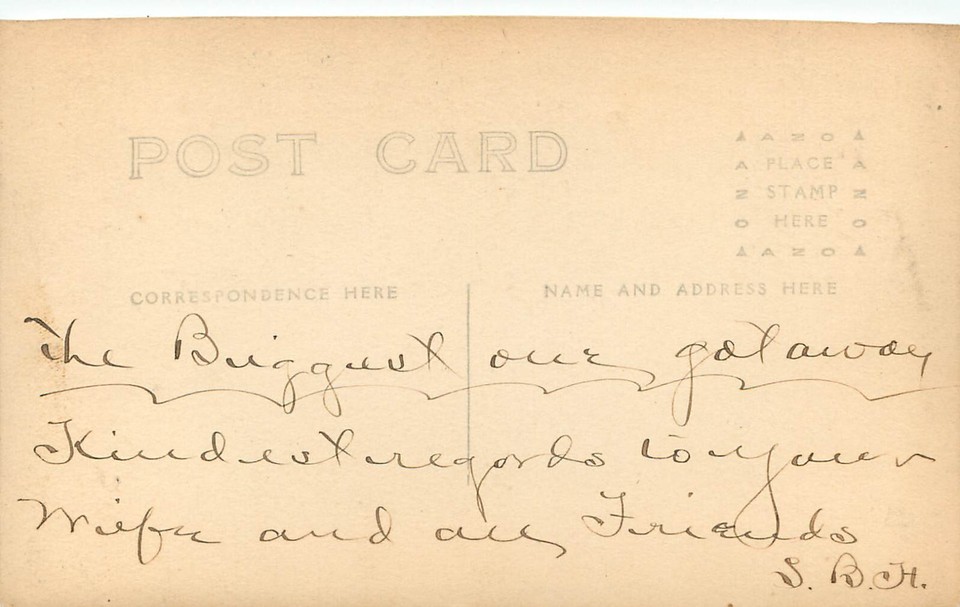 POST CARD
A A Z O A
A PLACE A
Z STAMP Z
O HERE O
A A Z O A
CORRESPONDENCE HERE
NAME AND ADDRESS HERE
The Biggest one got away
Kindest regards to your
Wife and all Friends
S. B. H.